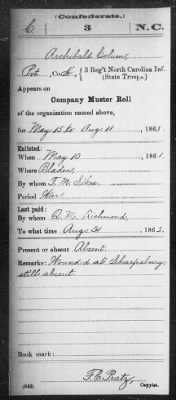 (Confederate.)
C 3 N.C.
Archibald
Pvt, Co. , { 3 Reg't North Carolina Inf.
(State Troops.)
Appears on
Company Muster Roll
of the organization named above,
for May 15 to Aug 11, 1863.
Enlisted:
When May 10, 1861.
Where Bladen,
By whom T. M. Sikes.
Period War
Last paid:
By whom R. W. Richmond,
To what time Aug. 31, 1862.
Present or absent Absent.
Remarks: Wounded at Sharpsburg
still absent.
Book mark:
F. W. Pratz,
(642) Copyist.